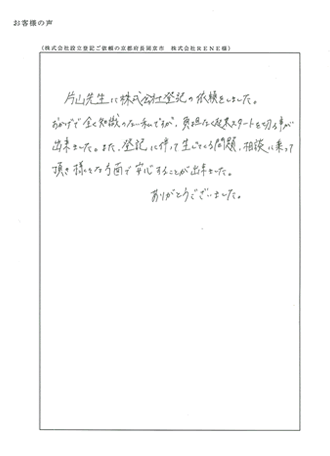 お客様の声
(株式会社設立登記ご依頼の京都府長岡京市 株式会社RENE様)
片山先生に株式会社登記の依頼をしました。
おかげで全く知識のない私ですが、負担なく起業スタートを切る事が
出来ました。また、登記に伴って生じてくる問題、相談に乗って
頂き様々な方面で安心することが出来ました。
ありがとうございました。